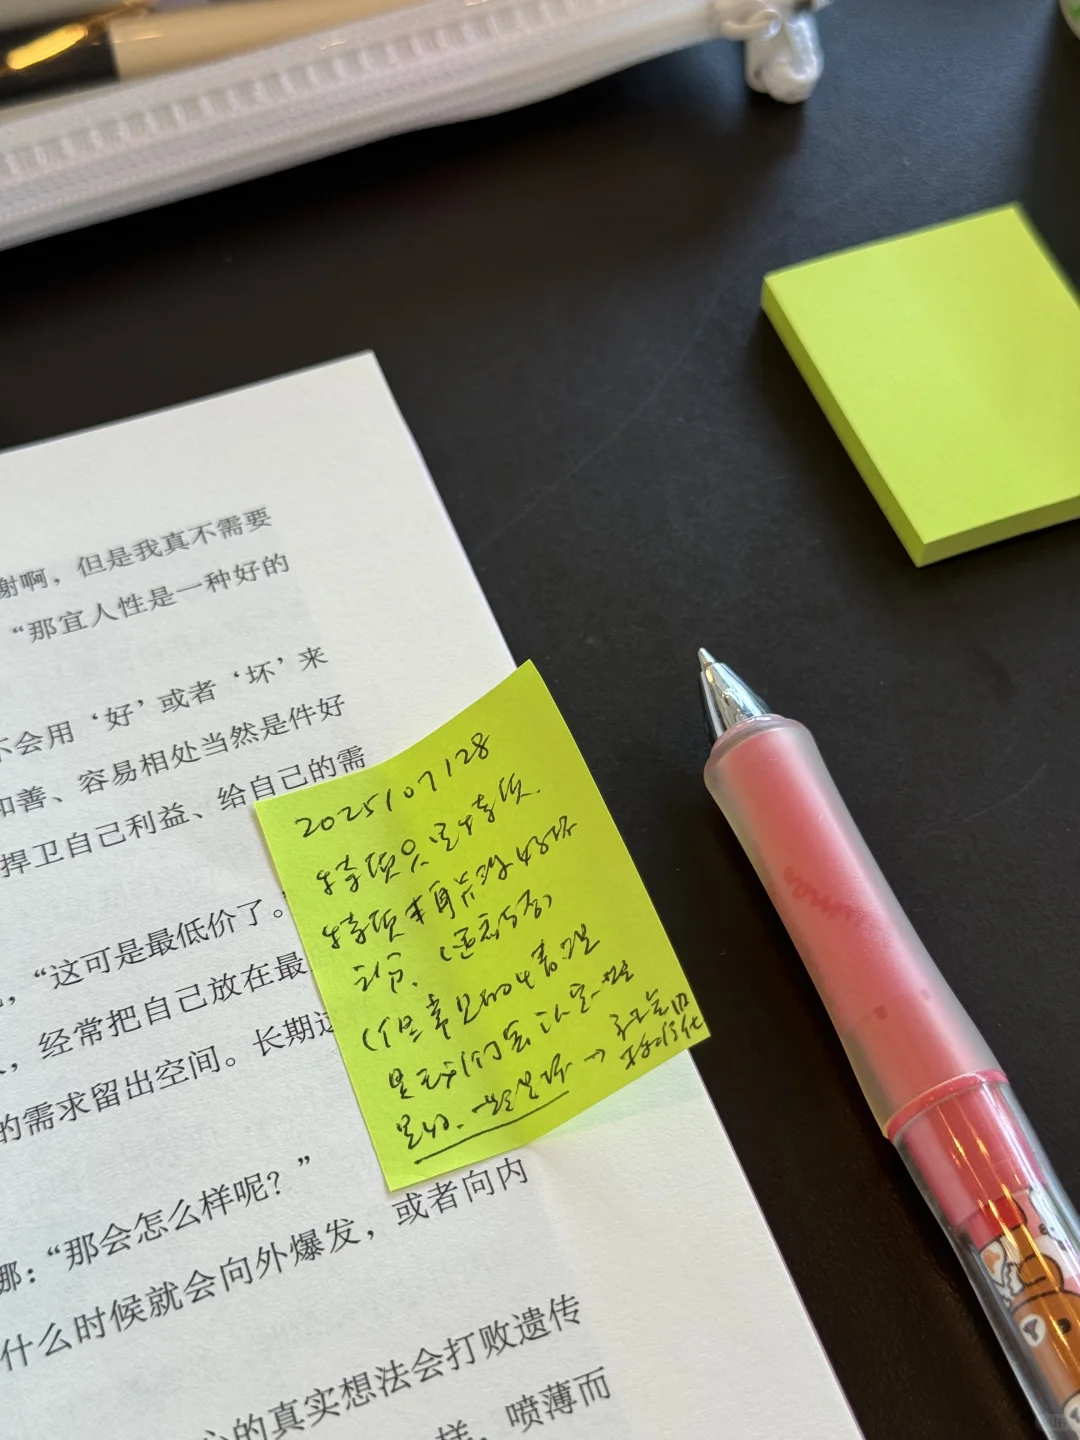 谢啊，但是我真不需要
“那宜人性是一种好的
不会用‘好’或者‘坏’来
和善、容易相处当然是件好
捍卫自己利益、给自己的需
“这可是最低价了。
，经常把自己放在最
的需求留出空间。长期这
“那会怎么样呢？”
娜：“那会怎么样呢？”
什么时候就会向外爆发，或者向内
心的真实想法会打败遗传
样，喷薄而
2025/07/28
特质只是特质.
特质本身并没好坏
之分.
(但常见的情况
是我们会认定一些
是好.一些是坏→社会的
标准化